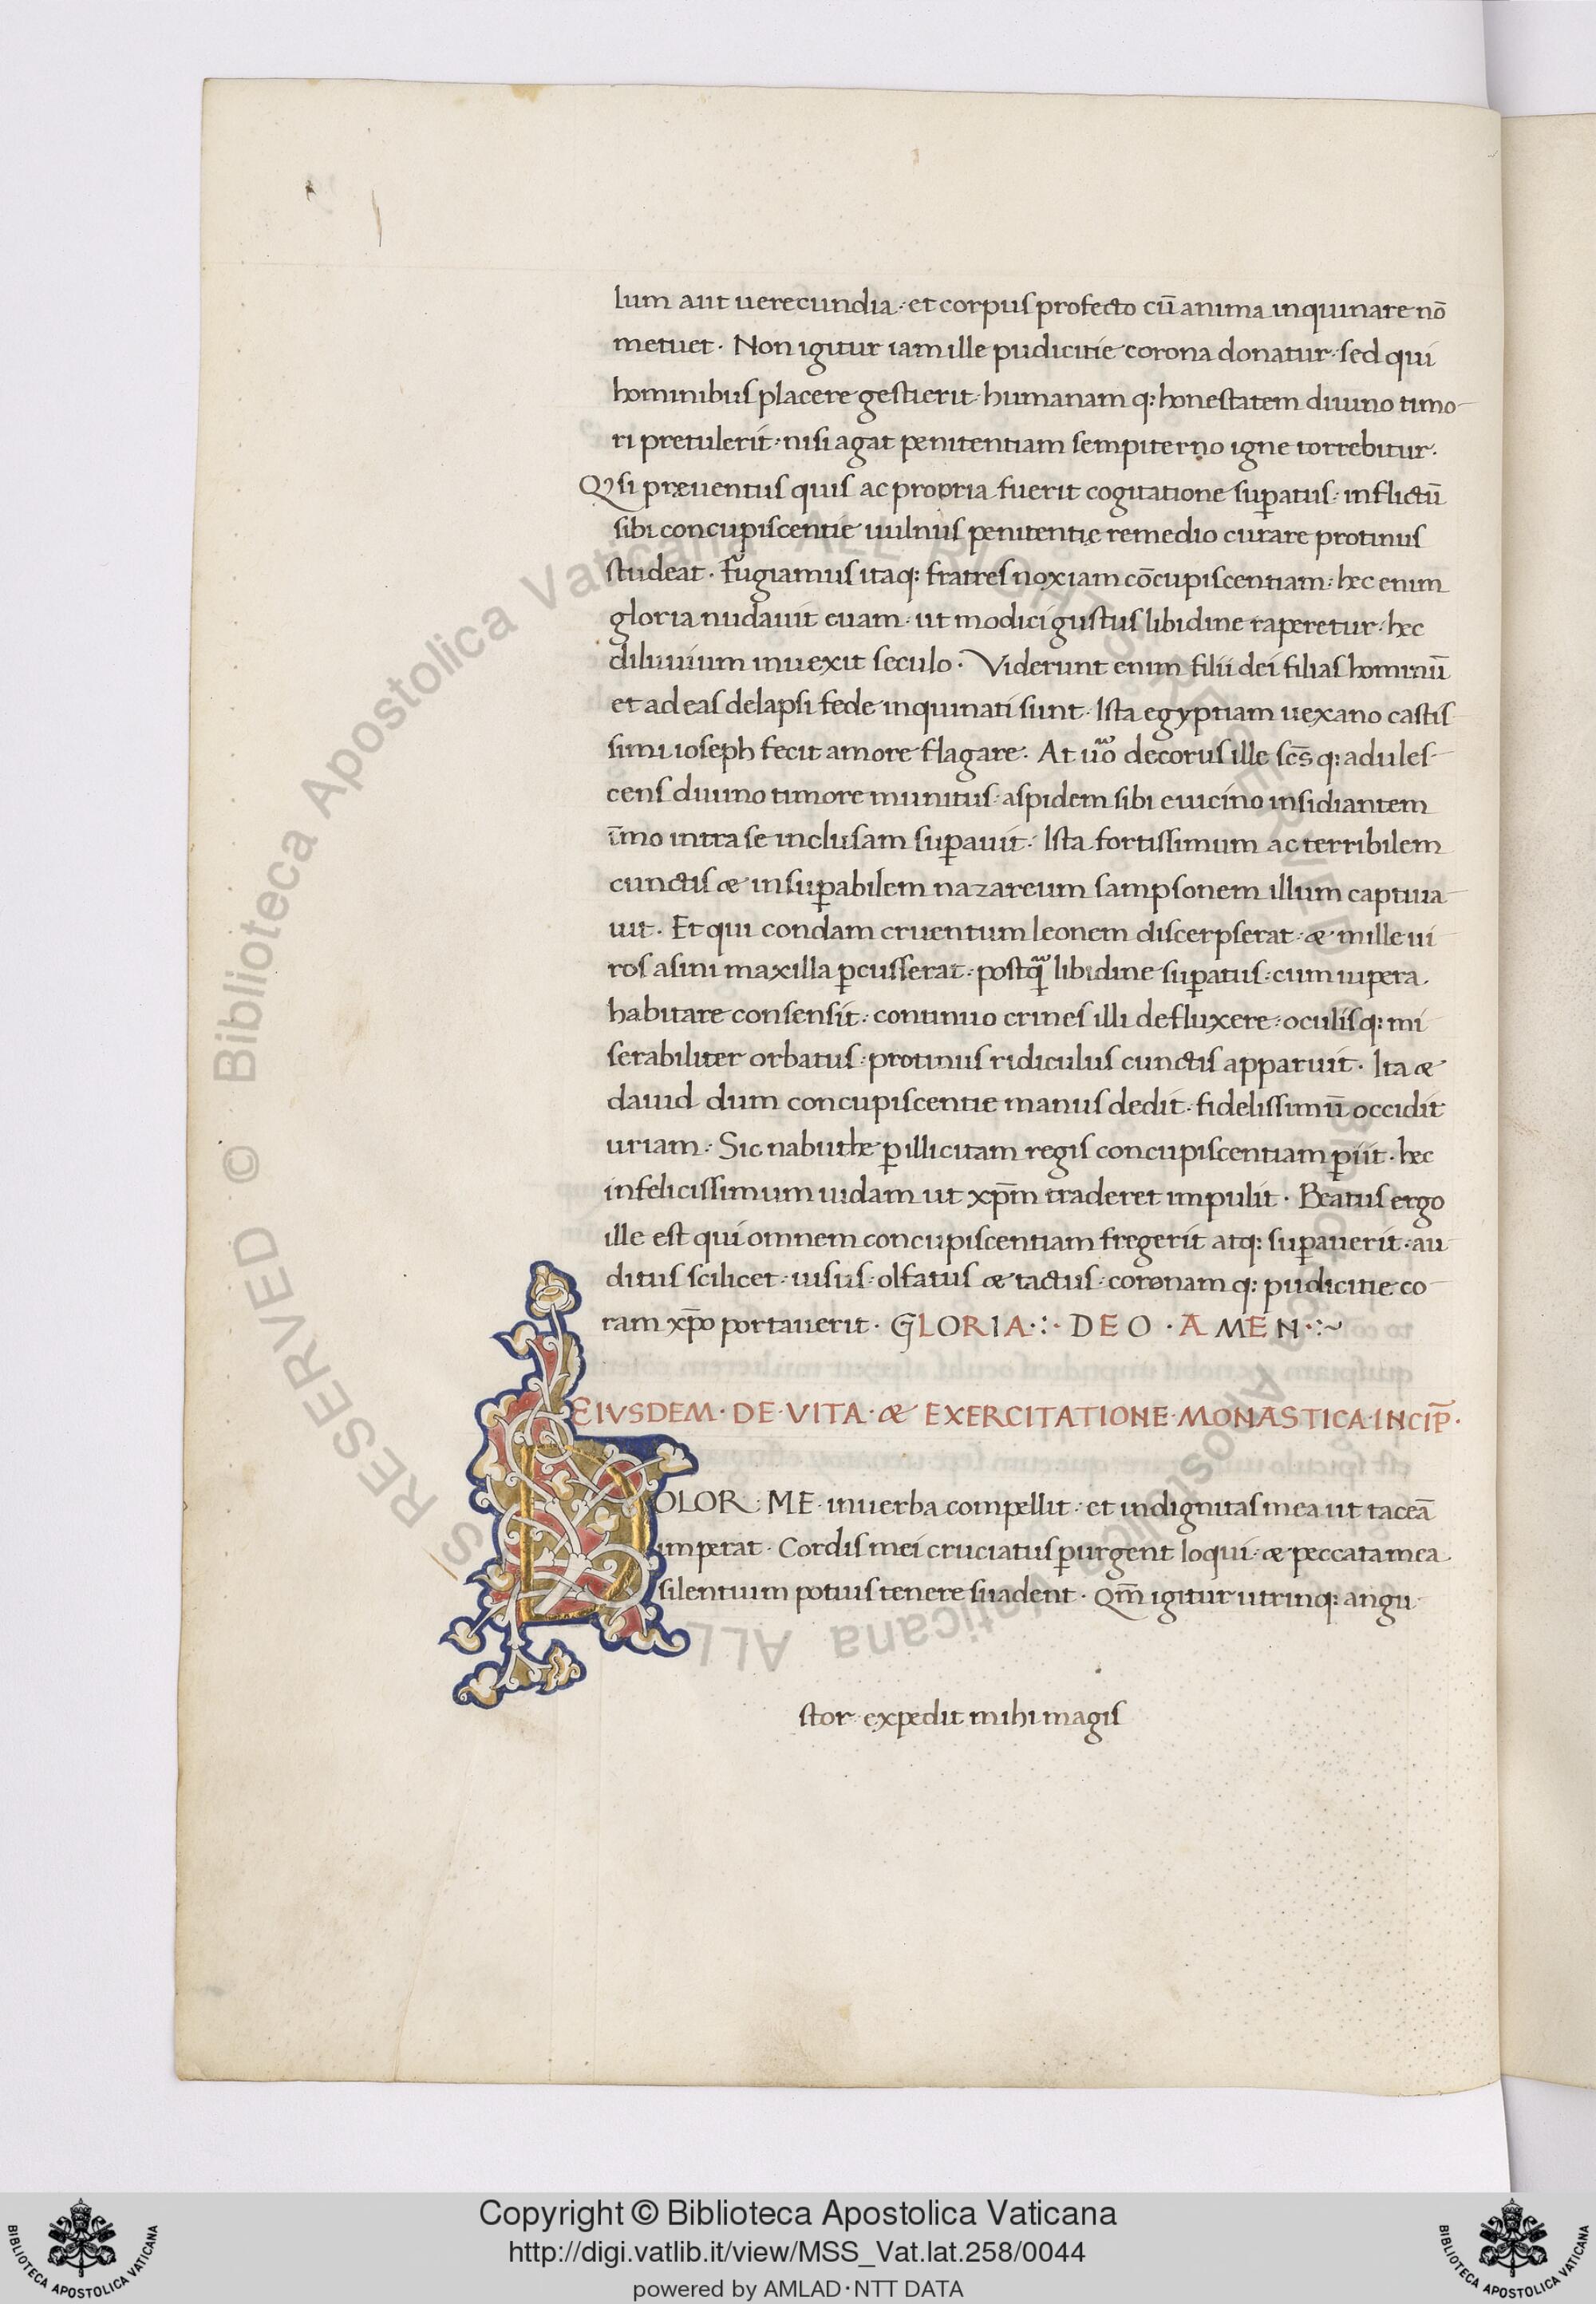 lum aut uerecundia : et corpus profecto cū anima inquinare nō
metuet . Non igitur iam ille pudicitie corona donatur : sed qui
hominibus placere gestierit : humanam q: honestatem diuino timo-
ri pretulerit : nisi agat penitentiam sempiterno igne torrebitur .
Qꝫ si præuentus quis ac propria fuerit cogitatione suꝑatus : inflictū
sibi concupiscentie uulnus penitentie remedio curare protinus
studeat . fugiamus itaq: fratres noxiam cōcupiscentiam : hec enim
gloria nudauit euam : ut modici gustus libidine raperetur : hec
diluuium inuexit seculo . Viderunt enim filii dei filias hominū
et ad eas delapsi fede inquinati sunt . Ista egyptiam uexano castis
simi ioseph fecit amore flagare . At uo decorus ille scs̄ q: adules-
cens diuino timore munitus : aspidem sibi euicino insidiantem
īmo intra se inclusam suꝑauit . Ista fortissimum ac terribilem
cunctis æ insuꝑabilem nazareum sampsonem illum captiua-
uit . Et qui condam cruentum leonem discerpserat : æ mille ui
ros asini maxilla ꝑcusserat : postq libidine suꝑatus : cum uipera
habitare consensit : continuo crines illi defluxere : oculis q: mi
serabiliter orbatus : protinus ridiculus cunctis apparuit . Ita æ
dauid dum concupiscentie manus dedit : fidelissimū occidit
uriam . Sic nabuthe ꝑ illicitam regis concupiscentiam ꝑiit . hec
infelicissimum iudam ut xp̄m traderet impulit . Beatus ergo
ille est qui omnem concupiscentiam fregerit atq: suꝑauerit : au
ditus scilicet : uisus : olfatus æ tactus : coronam q: pudicitie co-
ram xp̄o portauerit . GLORIA . : . DEO . AMEN . : ~
EIVSDEM . DE . VITA . æ EXERCITATIONE . MONASTICA . INCIP̄ .
DOLOR : ME in uerba compellit : et indignitas mea ut taceā
imperat . Cordis mei cruciatus ꝑurgent loqui : æ peccata mea
silentium potius tenere suadent . Qm̄ igitur utrinq: angu
stor expedit mihi magis
© Biblioteca Apostolica Vaticana ALL RIGHTS RESERVED © Biblioteca Apostolica Vaticana ALL RIGHTS RESERVED
Copyright © Biblioteca Apostolica Vaticana
http://digi.vatlib.it/view/MSS_Vat.lat.258/0044
powered by AMLAD·NTT DATA
BIBLIOTECA APOSTOLICA VATICANA
BIBLIOTECA APOSTOLICA VATICANA